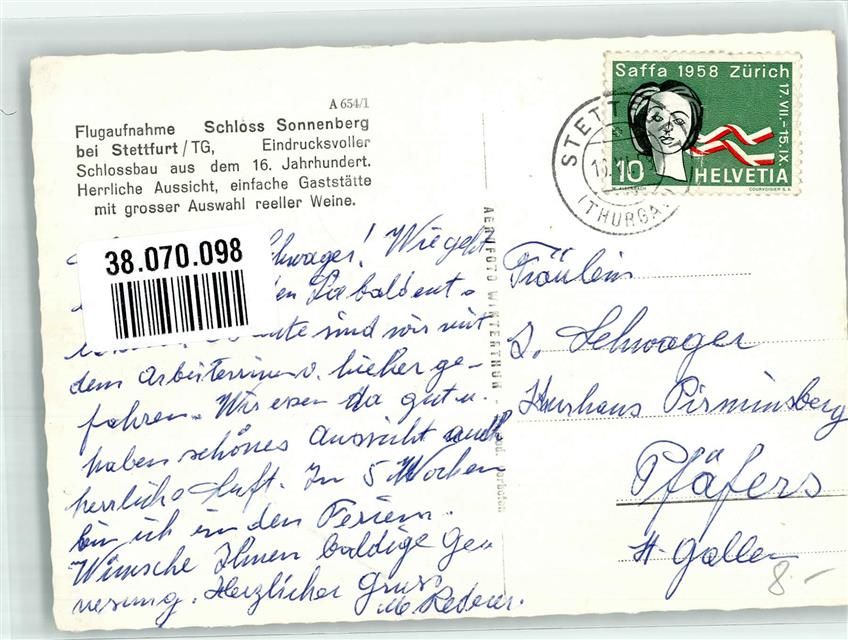 A 654/1
Flugaufnahme Schloss Sonnenberg
bei Stettfurt/TG, Eindrucksvoller
Schlossbau aus dem 16. Jahrhundert.
Herrliche Aussicht, einfache Gaststätte
mit grosser Auswahl reeller Weine.
Saffa 1958 Zürich
17.VII.–15.IX.
10
HELVETIA
COURVOISIER S.A.
STETT
(THURGA
38.070.098
Schwager! Wie geht
sind wir mit
dem Arbeiterinnenv. hieher ge-
fahren. Wir essen da gut u.
haben schönes Aussicht auch
herrliche Luft. In 5 Wochen
bin ich in den Ferien.
Wünsche Ihnen baldige Ge-
nesung. Herzlicher Gruss
M. Rederer.
AEROFOTO WINTERTHUR
Fräulein
S. Schwager
Kurhaus Pirminsberg
Pfäfers
St. Gallen
8.–